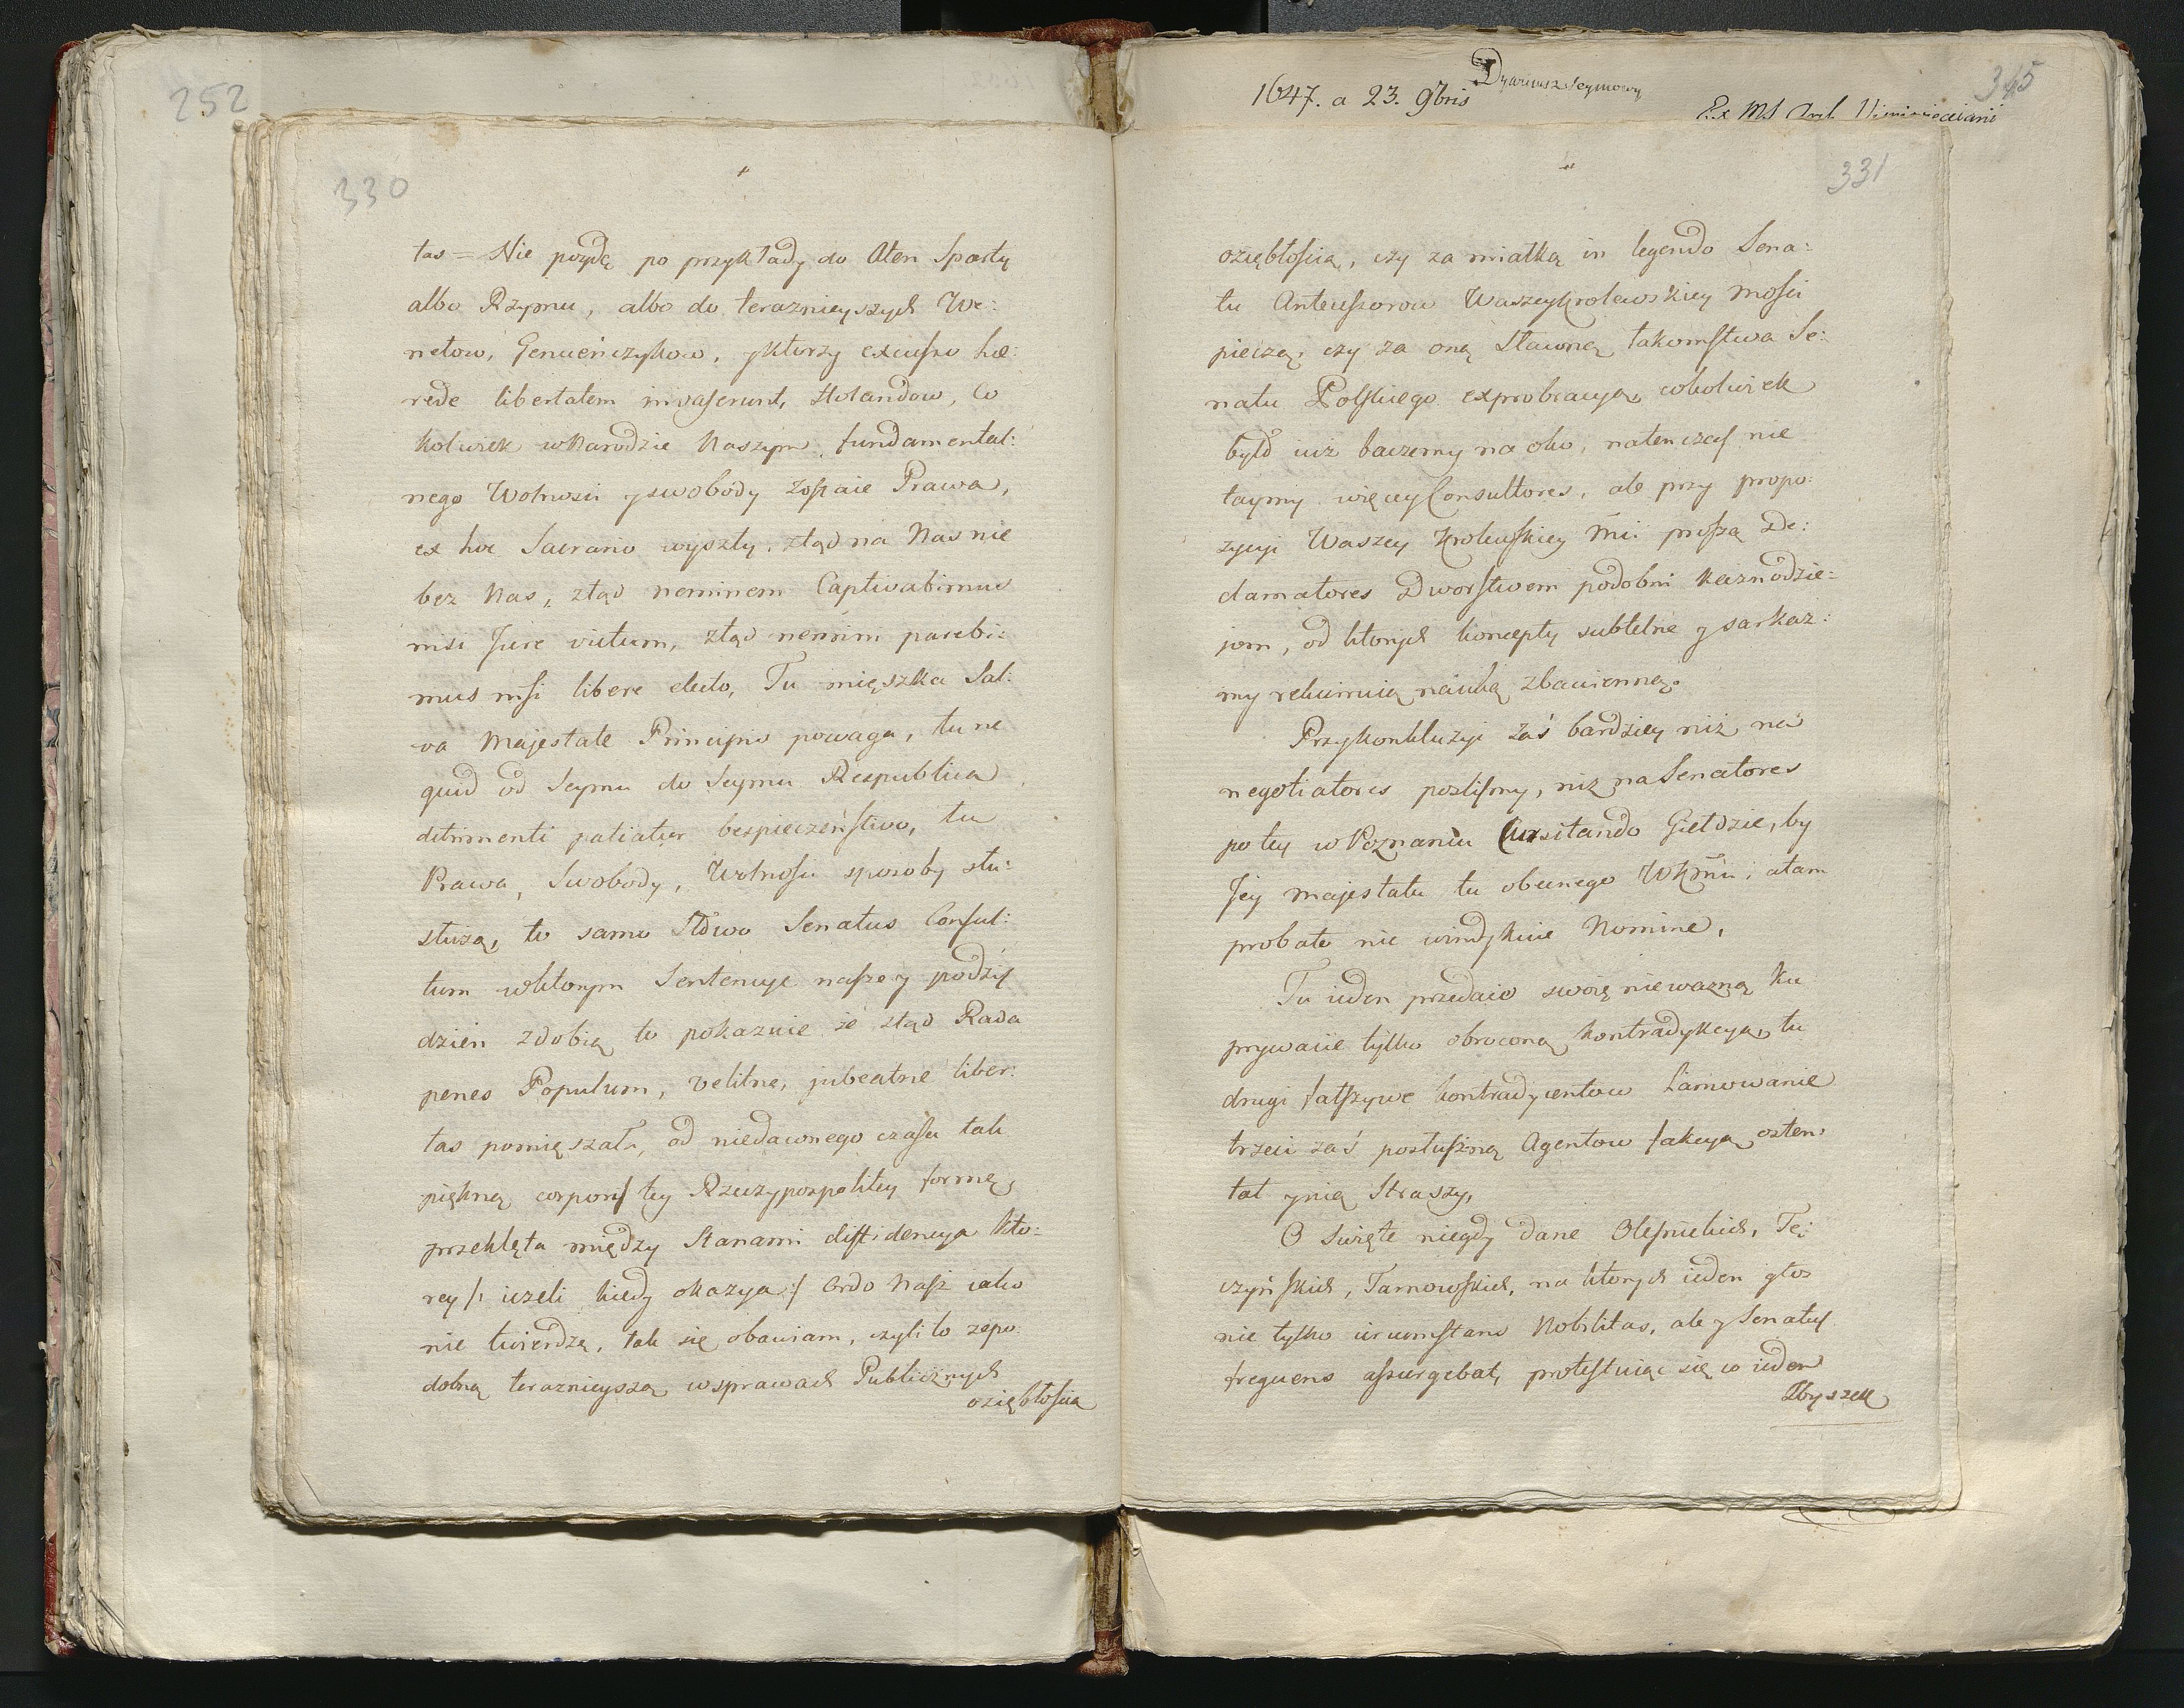 252
330
tas = Nie poydę po przykłady do Aten Sparty
albo Rzymu, albo do teraznieyszych We:
netow, Genueńczykow, y ktorzy excusso hæ:
rede libertatem invaserunt, Holandow, Co
kolwiek w Narodzie Naszym fundamental:
nego Wolnosci y swobody zostaie Prawa,
ex hoc Sacrario wyszły, ztąd na Nas nie
bez Nas, ztąd neminem Captivabimus
nisi Jure victum, ztąd nemini parebi:
mus nisi libere electo, Tu mięszka Sal:
va Majestate Principis powaga, tu ne
quid od Seymu do Seymu Respublica
detrimenti patiatur bespieczeństwo, tu
Prawa, Swobody, Wolnosci sposoby stu:
stuzą, to samo Słowo Senatus Consul:
tum w ktorym Sentencye nasze y podziś
dzien zdobią to pokazuie że ztąd Rada
penes Populum, velitne, jubeatne liber:
tas pomięszała, od niedawnego czasu tak
piękną corporis tey Rzeczypospolitey formę,
przeklęta między Stanami diffidencya kto:
rey /: ieżeli kiedy okazya :/ Ordo Nasz iako
nie twierdzę, tak się obawiam, czyli to zepo:
dobną teraznieyszą w sprawach Publicznych
oziębłoscią
1647. a 23. 9bris
Dyariusz Seymowy
Ex MS
345
331
oziębłoscią, czy za miałką in legendo Sena:
tu Antecessorow Waszey Krolewskiey Mości
pieczą, czy za oną Sławną łakomstwa Se:
natu Polskiego exprobracyą, cokolwiek
byłd iuż baczemy na oko, natenczas nie
taymy więcey Consultores, ale przy propo:
zycyi Waszey Krolewskiey Mci proszą De:
clamatores Dworstwem podobni kaznodzie:
jom, od ktorych koncepty subtelne y sarkaz:
my rekuiruią naukę zbawienną.
Przy konkluzyi zaś bardziey niż na
negotiatores poszlismy, niż na Senatores
po tey w Poznaniu Cursitando Giełdzie, by
Jey majestatu tu obecnego WKMci; atam
probate nie windykuie Nomine,
Tu ieden przedaie swoię nieważną ku
prywacie tylko obroconą kontradykcyą, tu
drugi fałszywe kontradycentow hamowanie
trzeci zaś posłuszną Agentow fakcyą osten:
tat y nią Straszy,
O święte niegdy dane Olesnickich, Tę:
czyńskich, Tarnowskich, na ktorych ieden głos
nie tylko circumstans Nobilitas, ale y Senatus
frequens assurgebat, protestuiąc się co ieden
Zbyszek